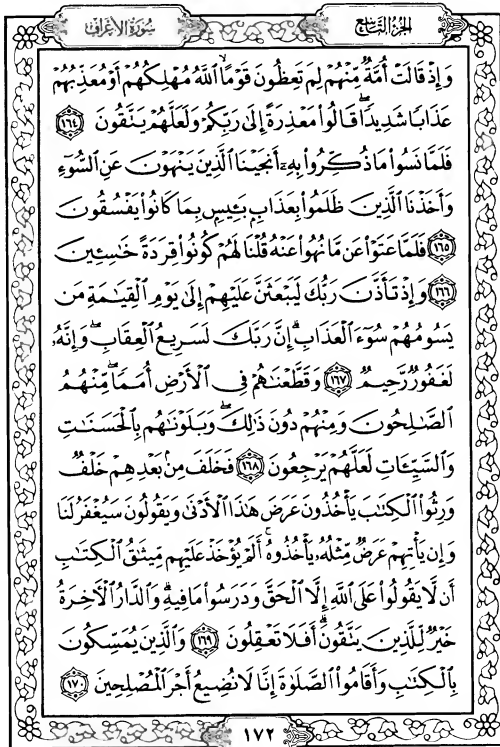 سُورَةُ الأَعْرَافِ
الجُزْءُ التَّاسِعُ
وَإِذْ قَالَتْ أُمَّةٌ مِّنْهُمْ لِمَ تَعِظُونَ قَوْمًا ۙ اللَّهُ مُهْلِكُهُمْ أَوْ مُعَذِّبُهُمْ
عَذَابًا شَدِيدًا ۖ قَالُوا مَعْذِرَةً إِلَىٰ رَبِّكُمْ وَلَعَلَّهُمْ يَتَّقُونَ ١٦٤
فَلَمَّا نَسُوا مَا ذُكِّرُوا بِهِ أَنجَيْنَا الَّذِينَ يَنْهَوْنَ عَنِ السُّوءِ
وَأَخَذْنَا الَّذِينَ ظَلَمُوا بِعَذَابٍ بَئِيسٍ بِمَا كَانُوا يَفْسُقُونَ
١٦٥ فَلَمَّا عَتَوْا عَن مَّا نُهُوا عَنْهُ قُلْنَا لَهُمْ كُونُوا قِرَدَةً خَاسِئِينَ
١٦٦ وَإِذْ تَأَذَّنَ رَبُّكَ لَيَبْعَثَنَّ عَلَيْهِمْ إِلَىٰ يَوْمِ الْقِيَامَةِ مَن
يَسُومُهُمْ سُوءَ الْعَذَابِ ۗ إِنَّ رَبَّكَ لَسَرِيعُ الْعِقَابِ ۖ وَإِنَّهُ
لَغَفُورٌ رَّحِيمٌ ١٦٧ وَقَطَّعْنَاهُمْ فِي الْأَرْضِ أُمَمًا ۖ مِّنْهُمُ
الصَّالِحُونَ وَمِنْهُمْ دُونَ ذَٰلِكَ ۖ وَبَلَوْنَاهُم بِالْحَسَنَاتِ
وَالسَّيِّئَاتِ لَعَلَّهُمْ يَرْجِعُونَ ١٦٨ فَخَلَفَ مِن بَعْدِهِمْ خَلْفٌ
وَرِثُوا الْكِتَابَ يَأْخُذُونَ عَرَضَ هَٰذَا الْأَدْنَىٰ وَيَقُولُونَ سَيُغْفَرُ لَنَا
وَإِن يَأْتِهِمْ عَرَضٌ مِّثْلُهُ يَأْخُذُوهُ ۚ أَلَمْ يُؤْخَذْ عَلَيْهِم مِّيثَاقُ الْكِتَابِ
أَن لَّا يَقُولُوا عَلَى اللَّهِ إِلَّا الْحَقَّ وَدَرَسُوا مَا فِيهِ ۗ وَالدَّارُ الْآخِرَةُ
خَيْرٌ لِّلَّذِينَ يَتَّقُونَ ۗ أَفَلَا تَعْقِلُونَ ١٦٩ وَالَّذِينَ يُمَسِّكُونَ
بِالْكِتَابِ وَأَقَامُوا الصَّلَاةَ إِنَّا لَا نُضِيعُ أَجْرَ الْمُصْلِحِينَ ١٧٠
١٧٢